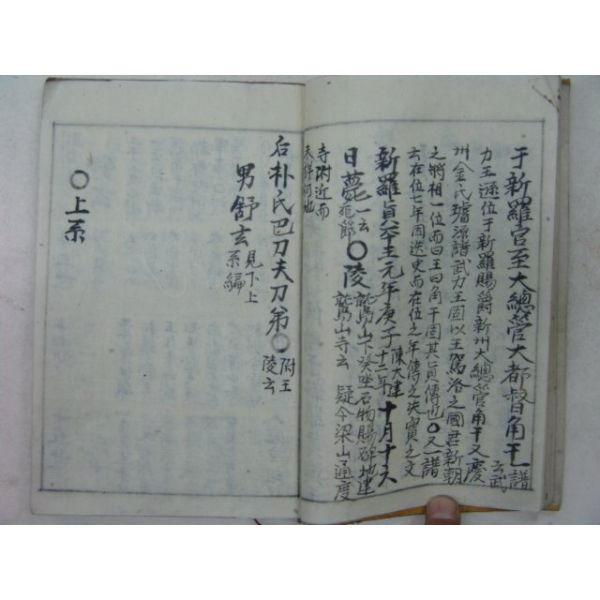 于新羅官至大總管大都督角干一譜
云武
力王遜位于新羅賜爵新州大總管角干又慶
州金氏璿源譜武力王固以王駕洛之國君新朝
之將相一位而曰王曰角干固其宜傳也〇又一譜
云在位七年因逸史而在位之年傳之失實之文
新羅眞平王元年庚子
陳大建
十二年
十月十六
日薨
一云
〇陵
鷲山下癸坐石物賜碑地建
鷲山寺云 疑今梁山通度
寺附近而
后朴氏巴刀夫刀弟〇
附王
陵云
男舒玄
見下上
系編
〇上系